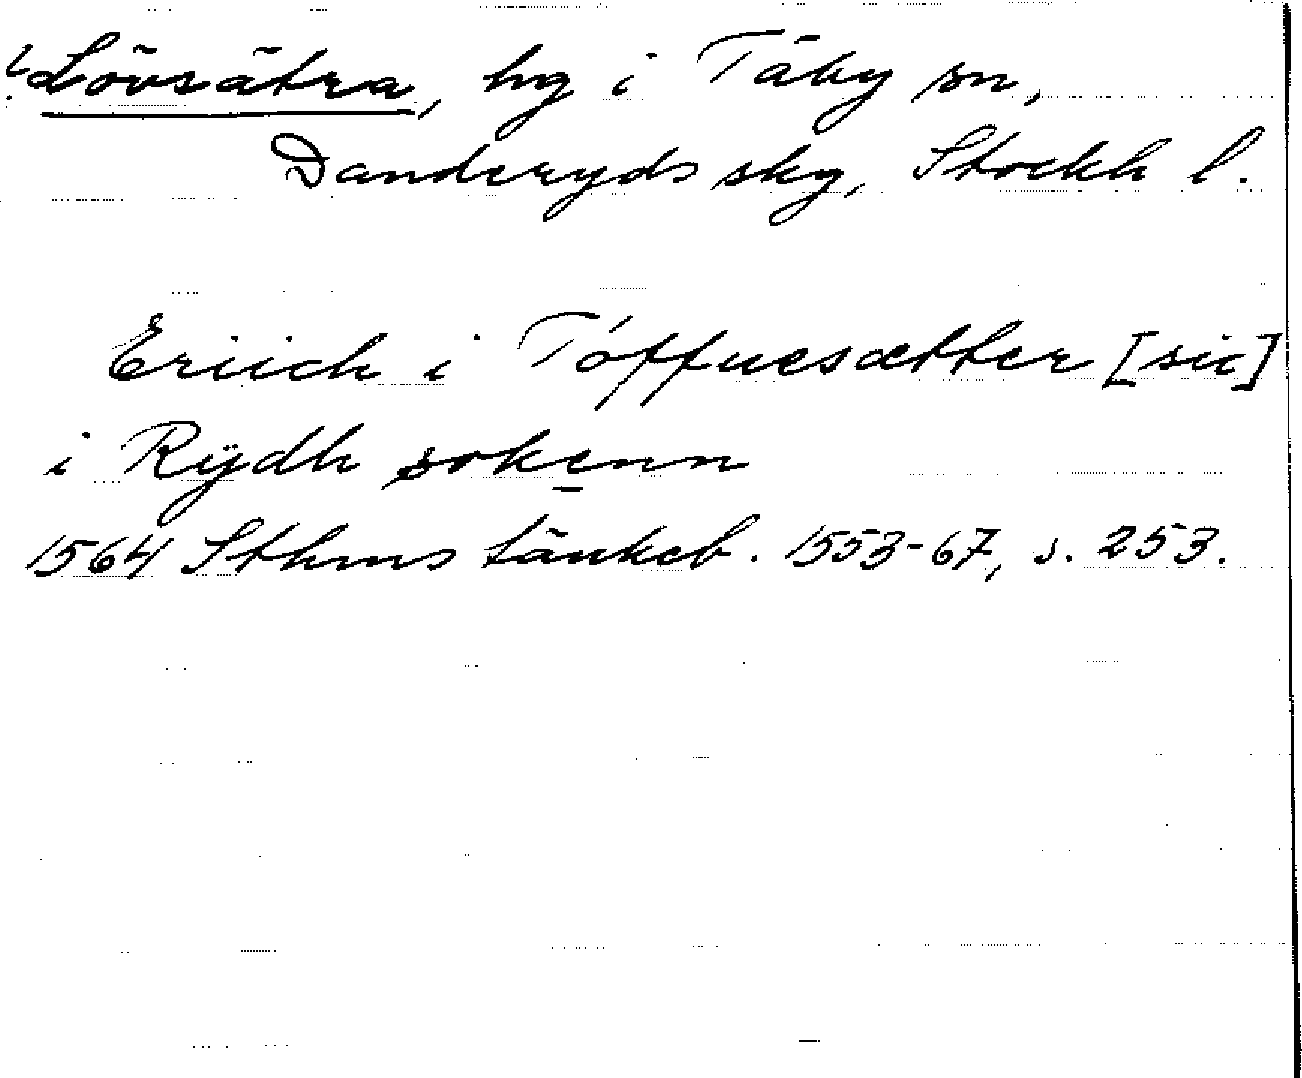 Lövsätra, hg i Täby sn,
Danderyds skg, Stockh l.
Eriich i Töffuesætter [sic]
i Rÿdh sokenn
1564 Sthms tänkeb. 1553-67, s. 253.